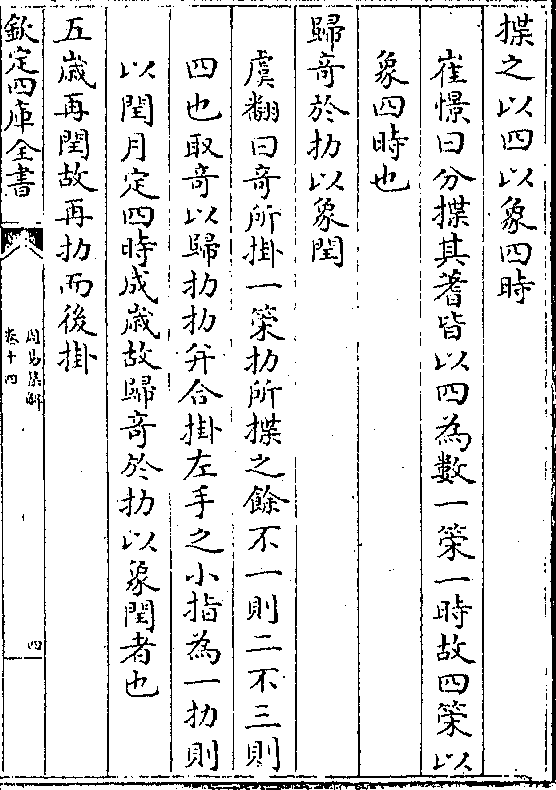 揲之以四以象四時
崔憬曰分揲其蓍皆以四為數一䇿一時故四䇿以
象四時也
歸奇於扐以象閏
虞翻曰奇所掛一䇿扐所揲之餘不一則二不三則
四也取奇以歸扐扐并合掛左手之小指為一扐則
以閏月定四時成歳故歸奇於扐以象閏者也
五歳再閏故再扐而後掛
欽定四庫全書
周易集解
卷十四
四